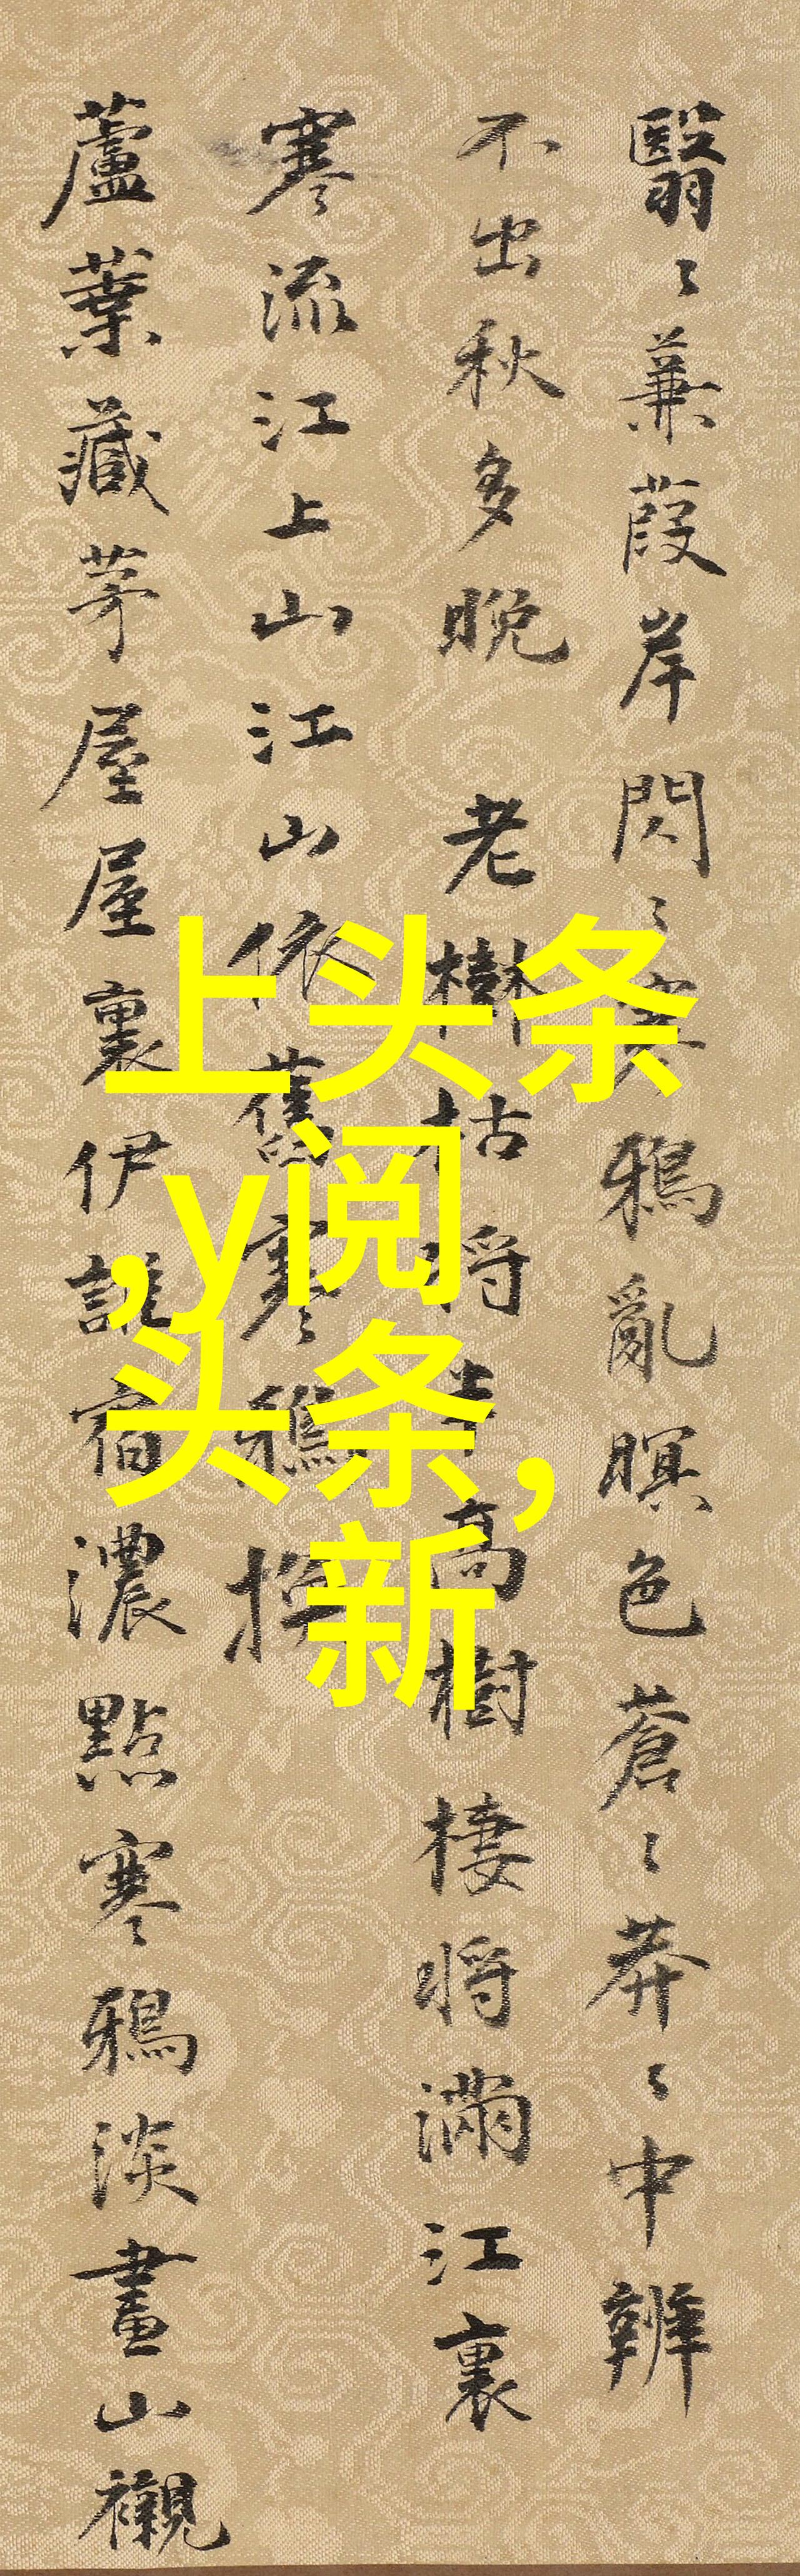 翳〻蒹葭岸閃〻寒鴉亂暝色蒼〻莽〻中辨
不出秋多晚 老樹枯將半高樹棲將滿江裏
寒流江上山江山依舊寒鴉操
蘆葉藏茅屋屋裏伊誰宿濃點寒鴉淡畫山襯
上头条
,y阅
头条,
新